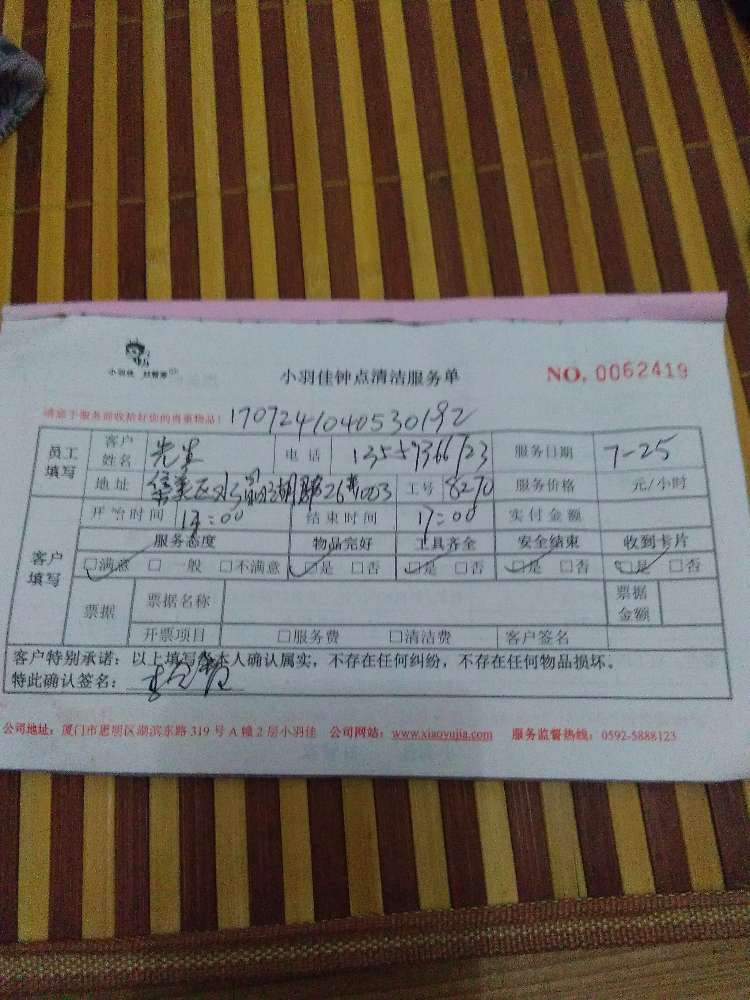 小羽佳
小羽佳钟点清洁服务单
NO. 0062419
请您于服务前收拾好您的贵重物品！ 1707241040530192
员工填写 客户姓名 先生 电话 服务日期 7-25
地址 工号 8270 服务价格 元/小时
客户填写 开始时间 17:00 实付金额
结束时间
服务态度 物品完好 工具齐全 安全结束 收到卡片
☑满意 □一般 □不满意 ☑是 □否 ☑是 □否 ☑是 □否 ☑是 □否
票据 票据名称 票据金额
开票项目 □服务费 □清洁费 客户签名
客户特别承诺：以上填写 本人确认属实，不存在任何纠纷，不存在任何物品损坏。
特此确认签名：
公司地址：厦门市思明区湖滨东路 319 号 A 幢 2 层小羽佳 公司网站：www.xiaoyujia.com 服务监督热线：0592-5888123